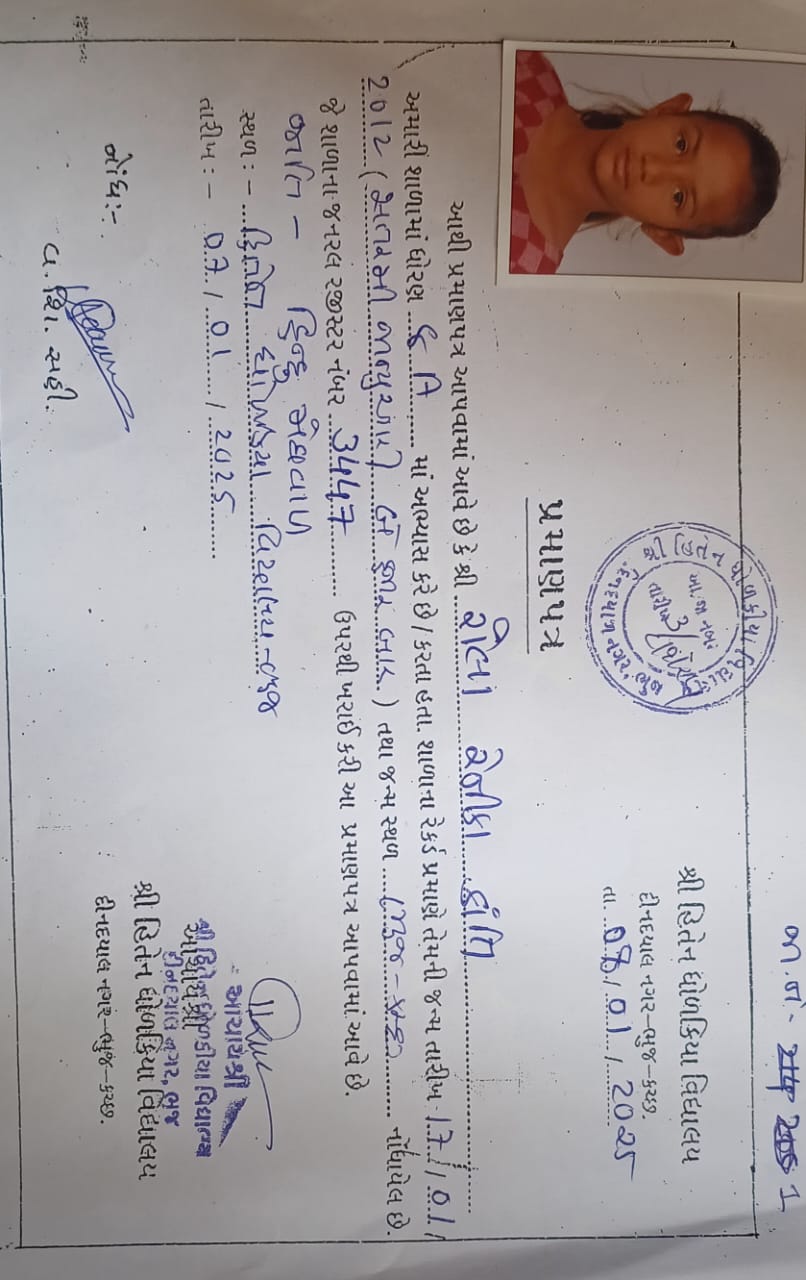 જા.નં.-
શ્રી હિતેન ધોળકિયા વિદ્યાલય
દીનદયાલ નગર-ભુજ-કચ્છ.
તા. 07/01/2025
પ્રમાણપત્ર
આથી પ્રમાણપત્ર આપવામાં આવે છે કે શ્રી
અમારી શાળામાં ધોરણ માં અભ્યાસ કરે છે/ કરતા હતા. શાળાના રેકર્ડ પ્રમાણે તેમની જન્મ તારીખ 17/01/
2012 ( ) તથા જન્મ સ્થળ ભુજ-કચ્છ નોંધાયેલ છે.
જે શાળાના જનરલ રજીસ્ટર નંબર 3447 ઉપરથી ખરાઈ કરી આ પ્રમાણપત્ર આપવામાં આવે છે.
જાતિ - હિન્દુ મેઘવાળ
સ્થળ:- હિતેન ધોળકિયા વિદ્યાલય-ભુજ
તારીખ:- 07/01/2025
આચાર્યશ્રી
શ્રી હિતેન ધોળકીયા વિદ્યાલય
દીનદયાલ નગર, ભુજ
આચાર્યશ્રી
શ્રી હિતેન ધોળકિયા વિદ્યાલય
દીનદયાલ નગર-ભુજ-કચ્છ.
નોંધ:-
વ. શિ. સહી.